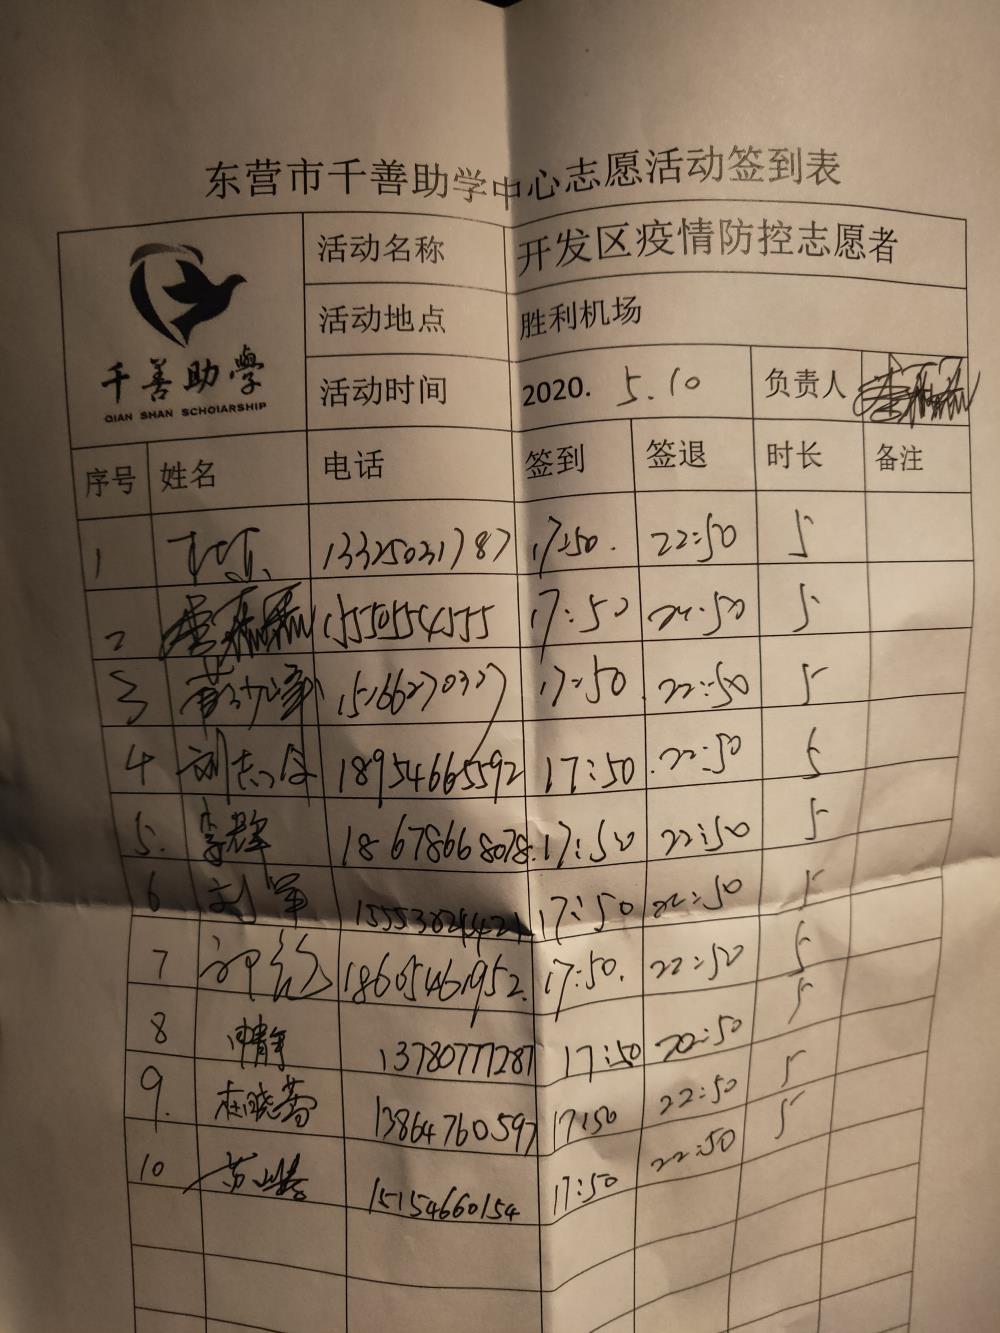 东营市千善助学中心志愿活动签到表
千善助学
QIAN SHAN SCHOLARSHIP
活动名称 开发区疫情防控志愿者
活动地点 胜利机场
活动时间 2020. 5.10 负责人
序号 姓名 电话 签到 签退 时长 备注
1 13325031787 17:50. 22:50 5
2 15550554555 17:50 22:50 5
3 15166270327 17:50 22:50 5
4 刘志 18954665592 17:50 22:50 5
5. 李辉 18678668078. 17:50 22:50 5
6 刘军 17:50 22:50 5
7 18605461952. 17:50. 22:50 5
8 申静 13780777287 17:50 22:50 5
9. 杜晓蕾 13864760597 17:50 22:50 5
10 15154660154 17:50 22:50 5